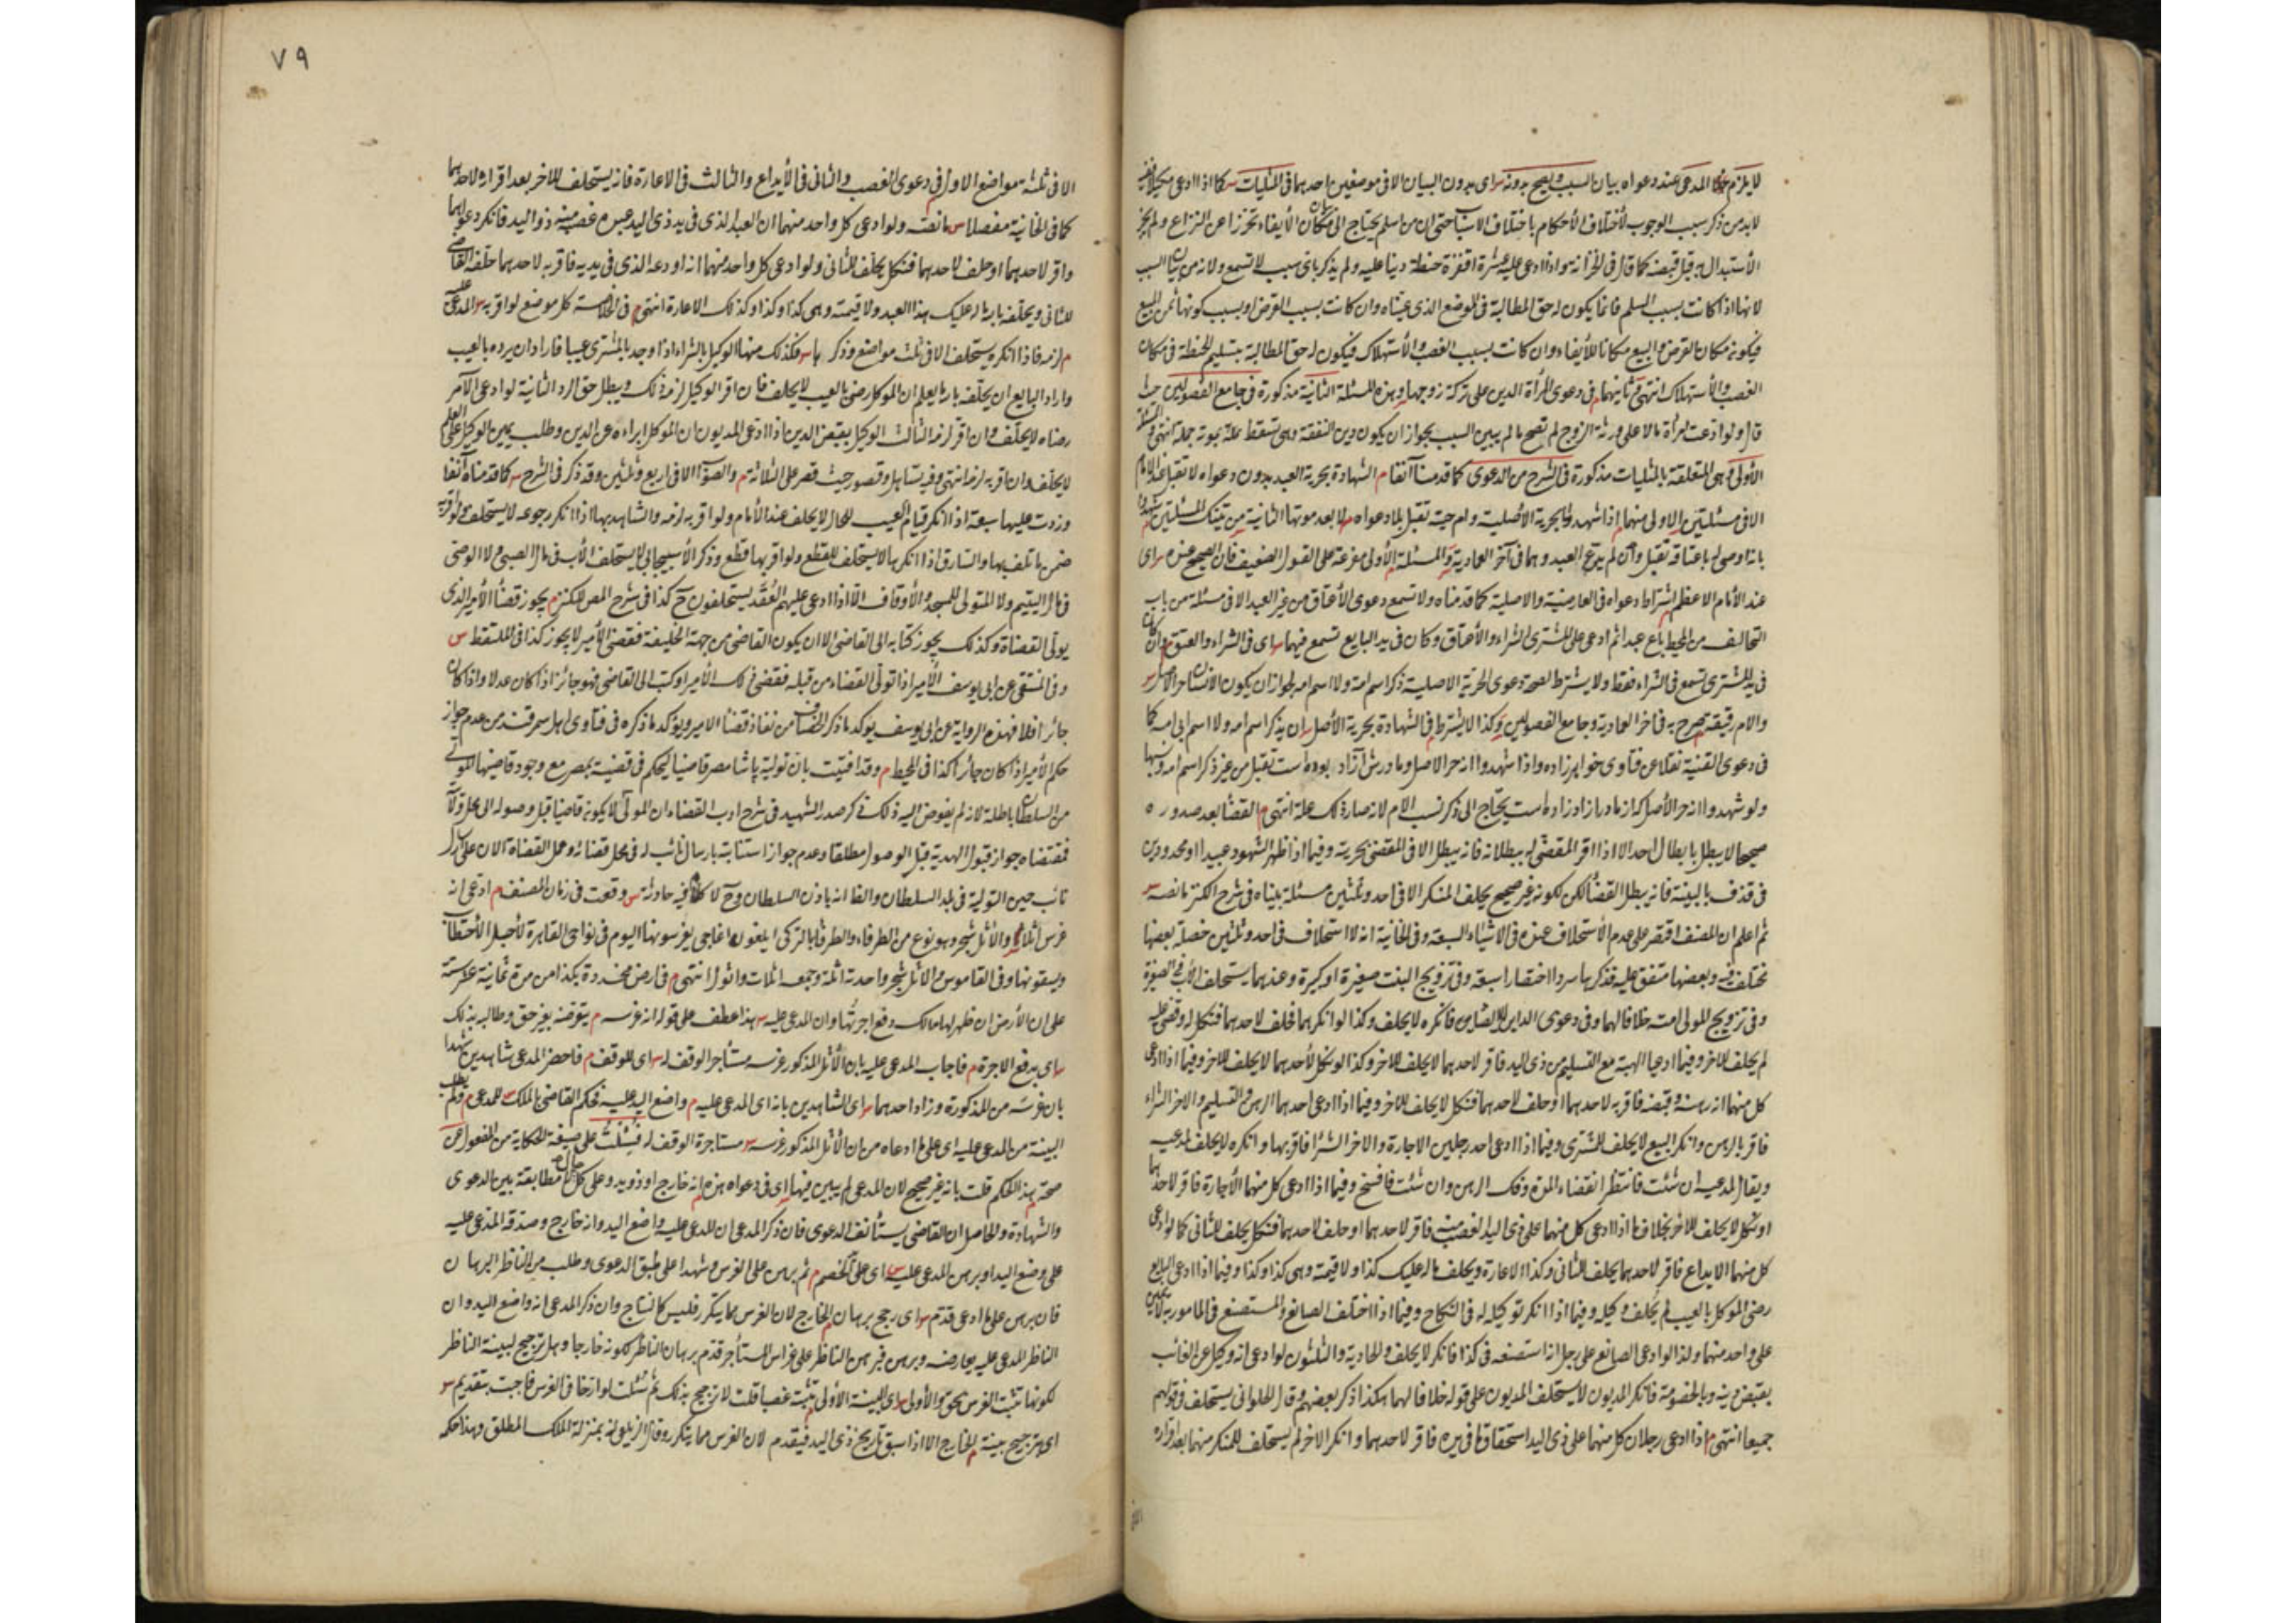 لا يلزم المدعى عند دعواه بيان السبب ويصح بدونه س اى بدون البيان الا فى موضعين احدهما فى المثليات س كما اذا ادعى مكيلا فحينئذ
لا بد من ذكر سبب الوجوب لأختلاف الأحكام باختلاف الأسباب حتى ان من اسلم يحتاج الى مكان الأيفاء تحرزا عن النزاع ولم يجز
الأستبدال به قبل قبضه كما قال فى الخزانه واذا ادعى عليه عشرة اقفزة حنطة دينا عليه ولم يذكر باى سبب لا تسمع ولا بد من بيان السبب
لانها اذا كانت بسبب السلم فانما يكون له حق المطالبة فى الموضع الذى عيناه وان كانت بسبب القرض او بسبب كونها ثمن المبيع
فيكون مكان القرض والبيع مكانا للأيفاء وان كانت بسبب الغصب والأستهلاك فيكون له حق المطالبة بتسليم الحنطة فى مكان
الغصب والأستهلاك انتهى م ثانيهما فى دعوى المرأة الدين على تركة زوجها وهذه المسئلة الثانية مذكورة فى جامع الفصولين حيث
قال ولو ادعت امرأة مالا على ورثة الزوج لم تصح ما لم يبين السبب لجواز ان يكون دين النفقة وهى تسقط بموته جملة انتهى والمسئلة
الأولى وهى المتعلقة بالمثليات مذكورة فى الشرح من الدعوى كما قدمنا آنفا م الشهادة بحرية العبد بدون دعواه لا تقبل عند الامام
الا فى مسئلتين الاولى منهما اذا شهدوا بالحرية الأصلية وامه حية تقبل بلا دعواه لا بعد موتها الثانية من تينك المسئلتين شهدوا
بانه اوصى له باعتاقه تقبل وان لم يدع العبد وهما فى آخر العمادية والمسئلة الأولى مفرعة على القول الضعيف فان الصحيح عنده س اى
عند الأمام الاعظم اشتراط دعواه فى العارضية والاصلية كما قدمناه ولا تسمع دعوى الأعتاق من غير العبد الا فى مسئلة من باب
التحالف من المحيط باع عبدا ثم ادعى على المشترى الشراء والأعتاق وكان فى يد البايع تسمع فيهما س اى فى الشراء والعتق م وان كان
فى يد المشترى تسمع فى الشراء فقط ولا يشترط لصحة دعوى الحرية الاصلية ذكر اسم امه ولا اسم اب امه لجواز ان يكون الأنسان حر الأصل س
والام رقيقة صرح به فى اخر العمادية وجامع الفصولين وكذا لا يشترط فى الشهادة بحرية الأصل ان يذكر اسم امه ولا اسم ابى امه كما
فى دعوى القنية نقلا عن فتاوى خواهر زاده واذا شهدوا انه حر الاصل ومادرش آزاد بوده است تقبل من غير ذكر اسم امه ونسبها
ولو شهدوا انه حر الأصل كه از مادر ازاد زاده است يحتاج الى ذكر نسب الام لانه صار ذلك علة انتهى م القضا بعد صدوره
صحيحا لا يبطل بابطال احد الا اذا اقر المقضى له ببطلانه فانه يبطل الا فى المقضى بحريته وفيما اذا ظهر الشهود عبيدا او محدودين
فى قذف بالبينة فانه يبطل القضا لكن لكونه غير صحيح يحلف المنكر الا فى احد وثلثين مسئلة بيناه فى شرح الكنز ما نصه س
ثم اعلم ان المصنف اقتصر على عدم الأستحلاف عنده فى الاشياء السبعة وفى الخانية انه لا استحلاف فى احد وثلثين خصلة بعضها
مختلف فيه وبعضها متفق عليه فذكرها سردا اختصارا سبعة وفى تزويج البنت صغيرة او كبيرة وعندهما يستحلف الأب فى الصغيرة
وفى تزويج المولى امته خلافا لهما وفى دعوى الداين الايصاء فانكره لا يحلف وكذا لو انكرهما فحلف لاحدهما فنكل له وقضى عليه
لم يحلف للاخر وفيما ادعيا الهبة مع التسليم من ذى اليد فاقر لاحدهما لا يحلف للاخر وكذا لو نكل لأحدهما لا يحلف للاخر وفيما اذا ادعى
كل منهما انه رهنه وقبضه فاقر به لاحدهما او حلف لاحدهما فنكل لا يحلف للاخر وفيما اذا ادعى احدهما الرهن والتسليم والاخر الشراء
فاقر بالرهن وانكر البيع لا يحلف للمشترى وفيما اذا ادعى احد رجلين الاجارة والاخر الشرا فاقر بها وانكره لا يحلف لمدعيه
ويقال لمدعيه ان شئت فانتظر انقضاء المدة وفك الرهن وان شئت فافسخ وفيما اذا ادعى كل منهما الأجارة فاقر لاحدهما
او نكل لا يحلف للاخر بخلاف ما اذا ادعى كل منهما على ذى اليد الغصب منه فاقر لاحدهما او حلف لاحدهما فنكل يحلف للثانى كما لو ادعى
كل منهما الايداع فاقر لاحدهما يحلف للثانى وكذا الاعارة ويحلف ماله عليك كذا ولا قيمته وهى كذا وكذا وفيما اذا ادعى البايع
رضى الموكل بالعيب لم يحلف وكيله وفيما اذا انكر توكيله له فى النكاح وفيما اذا اختلف الصانع والمستصنع فى المامور به لا يمين
على واحد منهما ولذا لو ادعى الصانع على رجل انه استصنعه فى كذا فانكر لا يحلف والحادية والثلثون لو ادعى انه وكيل عن الغائب
بقبض دينه وبالخصومة فانكر المديون لا يستحلف المديون على قوله خلافا لهما هكذا ذكر بعضهم وقال الحلوانى يستحلف فى قولهم
جميعا انتهى م اذا ادعى رجلان كل منهما على ذى اليد استحقاق ما فى يده فاقر لاحدهما وانكر الاخر لم يستحلف للمنكر منهما بعد اقراره
٧٩
الا فى ثلثة مواضع الاول فى دعوى الغصب والثانى فى الأيداع والثالث فى الاعارة فانه يستحلف للاخر بعد اقراره لاحدهما
كما فى الخانية مفصلا س ما نصه ولو ادعى كل واحد منهما ان العبد الذى فى يد ذى اليد عبده غصبه منه ذو اليد فانكر دعواهما
واقر لاحدهما او حلف لاحدهما فنكل يحلف للثانى ولو ادعى كل واحد منهما انه اودعه الذى فى يديه فاقر به لاحدهما حلفه القاضى
للثانى ويحلفه بالله ما له عليك هذا العبد ولا قيمته وهى كذا وكذا وكذلك الاعارة انتهى م فى الخلاصة كل موضع لو اقر به س المدعى عليه
م لزمه فاذا انكره يستحلف الا فى ثلث مواضع وذكرها س فكذلك منها الوكيل بالشراء اذا وجد بالمشترى عيبا فاراد ان يرده بالعيب
واراد البايع ان يحلفه بالله ما يعلم ان الموكل رضى بالعيب لا يحلف فان اقر الوكيل لزمه ذلك ويبطل حق الرد الثانية لو ادعى الآمر
رضاه لا يحلف وان اقر لزمه الثالث الوكيل بقبض الدين اذا ادعى المديون ان الموكل ابراءه عن الدين وطلب يمين الوكيل على العلم
لا يحلف وان اقر به لزمه انتهى وفيه تساهل وقصور حيث قصر على الثلاثة م والصواب الا فى اربع وثلثين وقد ذكر فى الشرح س كما قدمناه آنفا
وزدت عليها سبعة اذا انكر قيام العيب للحال لا يحلف عند الأمام ولو اقر به لزمه والشاهد بها اذا انكر رجوعه لا يستحلف ولو اقر به
ضمن ما تلف بها والسارق اذا انكرها لا يستحلف للقطع ولو اقر بها قطع وذكر الأسبيجابى لا يستحلف الأب فى مال الصبى ولا الوصى
فى مال اليتيم ولا المتولى للمسجد والأوقاف الا اذا ادعى عليهم العقد يستحلفون ح كذا فى شرح المص للكنز م يجوز قضا الأمير الذى
يولى القضاة وكذلك يجوز كتابه الى القاضى الا ان يكون القاضى من جهة الخليفة فقضى الأمير لا يجوز كذا فى الملتقط س
وفى المنتقى عن ابى يوسف الأمير اذا تولى القضاء من قبله فقضى ذلك الأمير او كتب الى القاضى فهو جائز اذا كان عدلا واذا كان
جائرا فلا فهذه الرواية عن ابى يوسف يوكد ما ذكر الخصاف من نفاذ قضا الامير ويوكد ما ذكره فى فتاوى اهل سمرقند من عدم جواز
حكم الأمير اذا كان جائرا كذا فى المحيط م وقد افتيت بان تولية باشا مصر قاضيا ليحكم فى قضية بمصر مع وجود قاضيها المولى
من السلطان باطلة لانه لم يفوض اليه ذلك ذكر صدر الشهيد فى شرح ادب القضاء ان المولى لا يكون قاضيا قبل وصوله الى محل ولايته
فمقتضاه جواز قبول الهدية قبل الوصول مطلقا وعدم جواز استنابته بارسال نائب له فى محل قضائه وعمل القضاة الآن على ارسال
نائب حين التولية فى بلد السلطان والظ انه باذن السلطان وح لا كلام فيه حادثة س وقعت فى زمان المصنف م ادعى انه
غرس اثلا س والأثل شجر وهو نوع من الطرفاء والطرفا بالتركى ايلغون اغاجى يغرسونها اليوم فى نواحى القاهرة لأجل الأحتطاب
ويسقونها وفى القاموس والاثل شجر واحدته اثلة وجمعه اثلات واثول انتهى م فى ارض محدودة بكذا من مدة ثمانية عشر سنة
على ان الأرض ان ظهر لها مالك دفع اجرتها وان المدعى عليه س هذا عطف على قوله انه غرسه م يتعرضه بغير حق وطالبه بذلك
س اى بدفع الاجرة م فاجاب المدعى عليه بان الأثل المذكور غرسه مستأجر الوقف له س اى للوقف م فاحضر المدعى شاهدين شهدا
بان غرسه من المذكورة وزاد احدهما س اى الشاهدين بانه اى المدعى عليه م واضع اليد عليه فحكم القاضى بالملك س للمدعى م ولم يطلب
البينة من المدعى عليه اى على ما ادعاه من ان الأثل المذكور غرسه س مستاجرة الوقف له فسئلت على صيغة الحكاية من المفعول عن
صحة هذا الحكم قلت بانه غير صحيح لان المدعى لم يبين فيها اى فى دعواه هذه انه خارج او ذو يد وعلى كل حال لا مطابقة بين الدعوى
والشهادة والحاصل ان القاضى يستأنف الدعوى فان ذكر المدعى ان المدعى عليه واضع اليد وانه خارج وصدقه المدعى عليه
على وضع اليد او برهن المدعى عليه س اى على الخصم م ثم برهن على الغرس وشهدا على طبق الدعوى وطلب من الناظر البرهان
فان برهن على ما ادعى قدم س اى رجح برهان الخارج لان الغرس مما يتكرر فليس كالنتاج وان ذكر المدعى انه واضع اليد وان
الناظر المدعى عليه يعارضه وبرهن فبرهن الناظر على غراس المستأجر قدم برهان الناظر لكونه خارجا وهل ترجيح لبينة الناظر
لكونها تثبت الغرس بحق والأولى س اى البينة الأولى تثبته غصبا قلت لا ترجيح بذلك ثم سئلت لو ارخا فى الغرس فاجبت بتقديم س
اى بترجيح بينة الخارج الا اذا سبق تاريخ ذى اليد فيقدم لان الغرس مما يتكرر وقال الزيلعى انه بمنزلة الملك المطلق وهذا حكمه